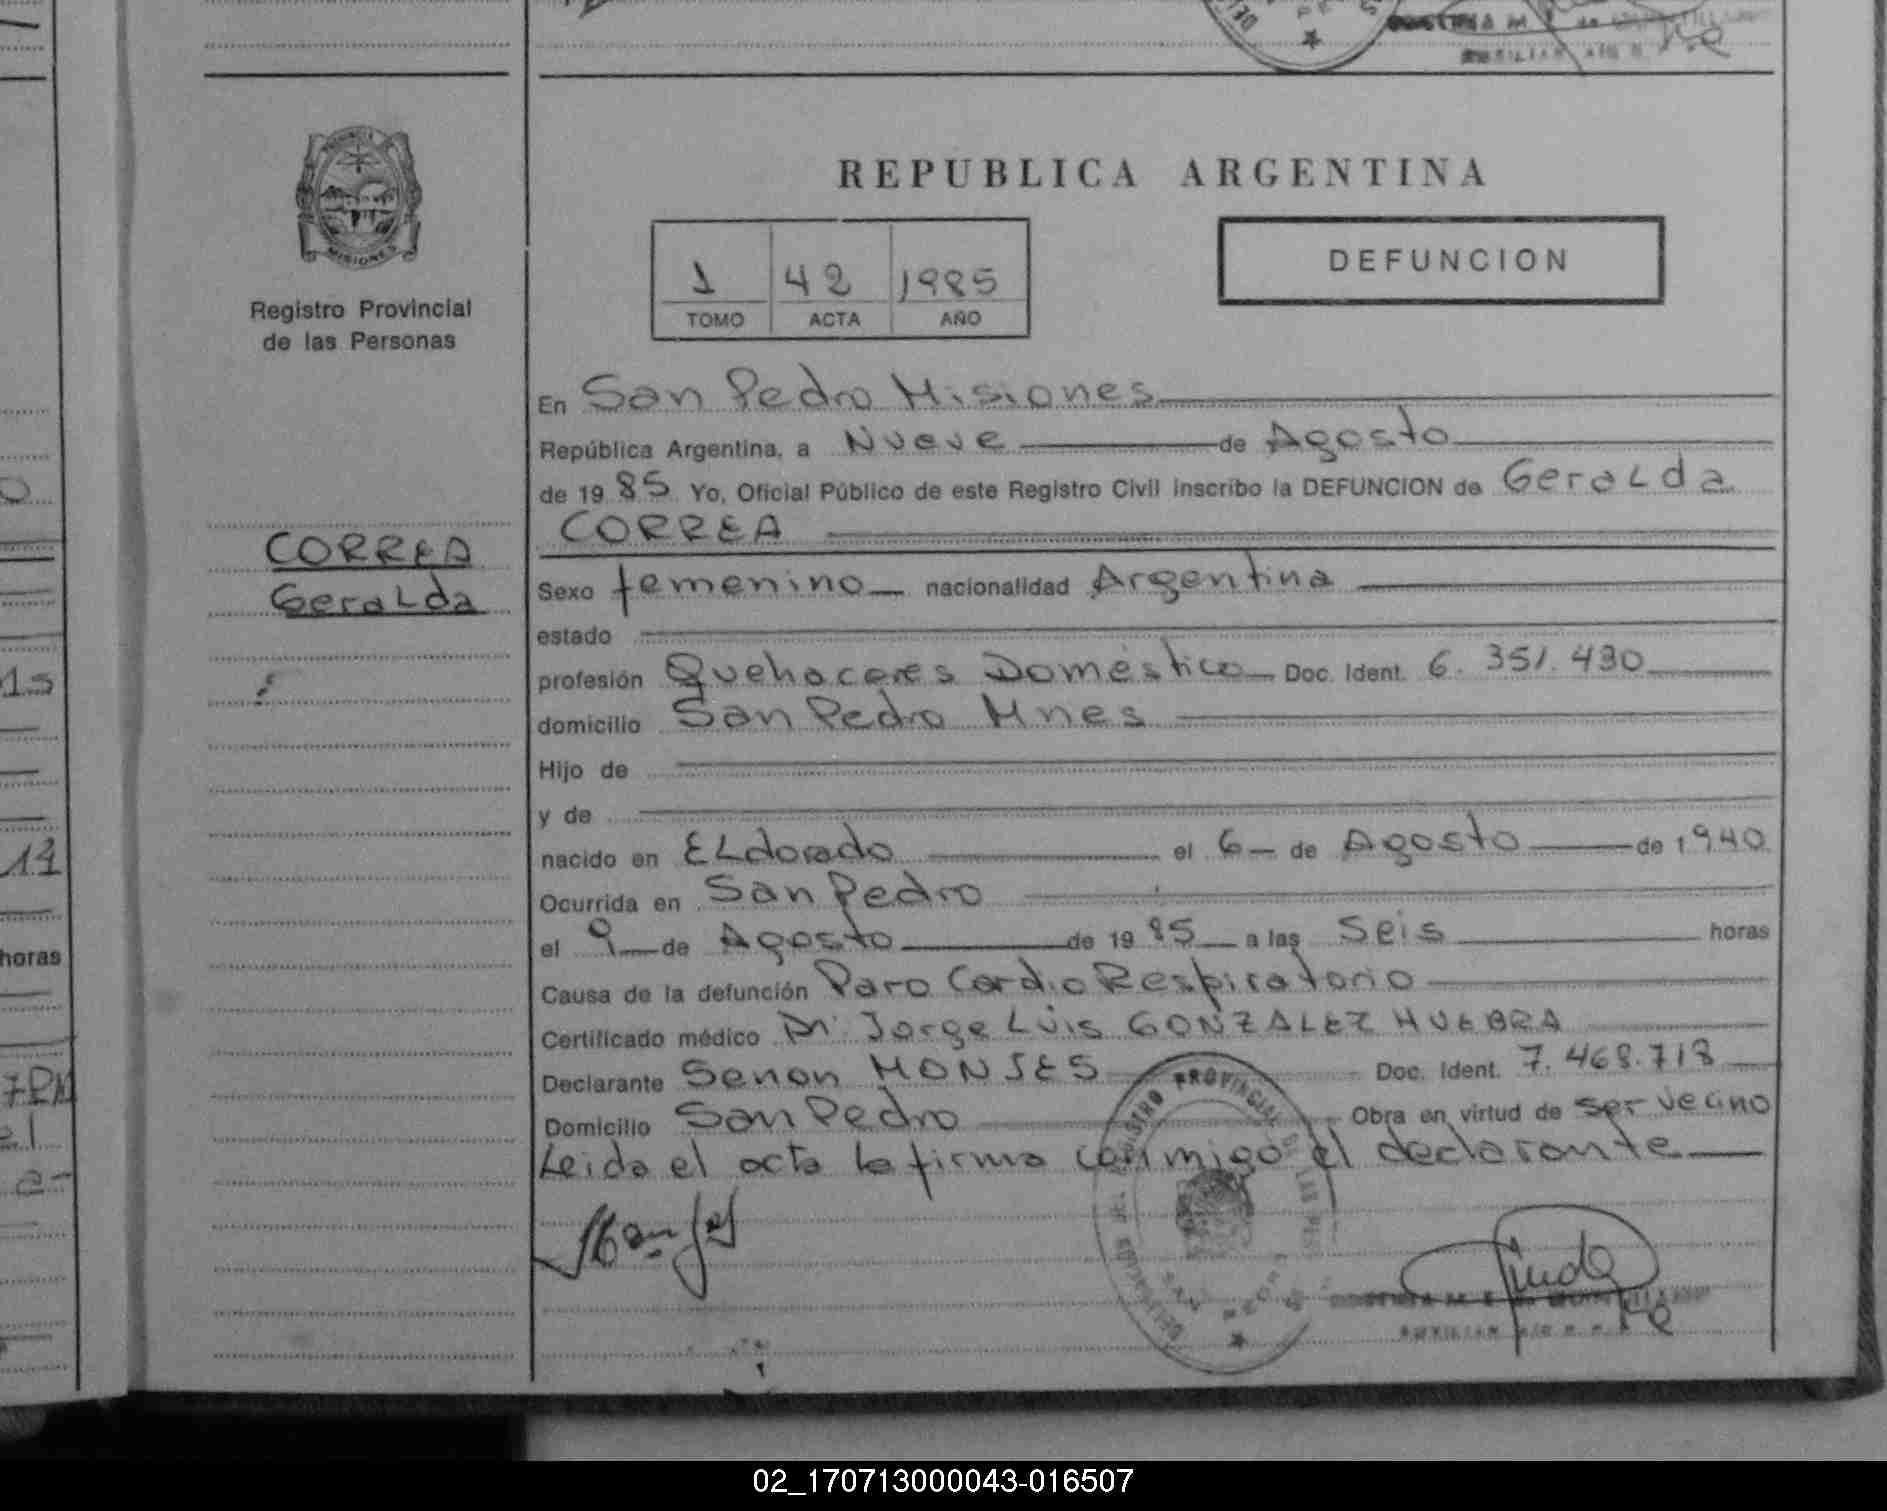 REPUBLICA ARGENTINA
PROVINCIA
MISIONES
Registro Provincial
de las Personas
1 42 1985
TOMO ACTA AÑO
DEFUNCION
En San Pedro Misiones
República Argentina, a Nueve de Agosto
de 1985 Yo, Oficial Público de este Registro Civil inscribo la DEFUNCION de Geralda
CORREA
CORREA
Geralda
Sexo femenino nacionalidad Argentina
estado
profesión Quehaceres Doméstico Doc. Ident. 6.351.430
domicilio San Pedro Mnes
Hijo de
y de
nacido en ELdorado el 6 de Agosto de 1940
Ocurrida en San Pedro
el 9 de Agosto de 1985 a las Seis horas
Causa de la defunción Paro Cardio Respiratorio
Certificado médico Dr. Jorge Luis GONZALEZ HUEBRA
Declarante Senon MONJES Doc. Ident. 7.468.718
Domicilio San Pedro Obra en virtud de ser vecino
Leida el acta la firma conmigo el declarante
horas
02_170713000043-016507